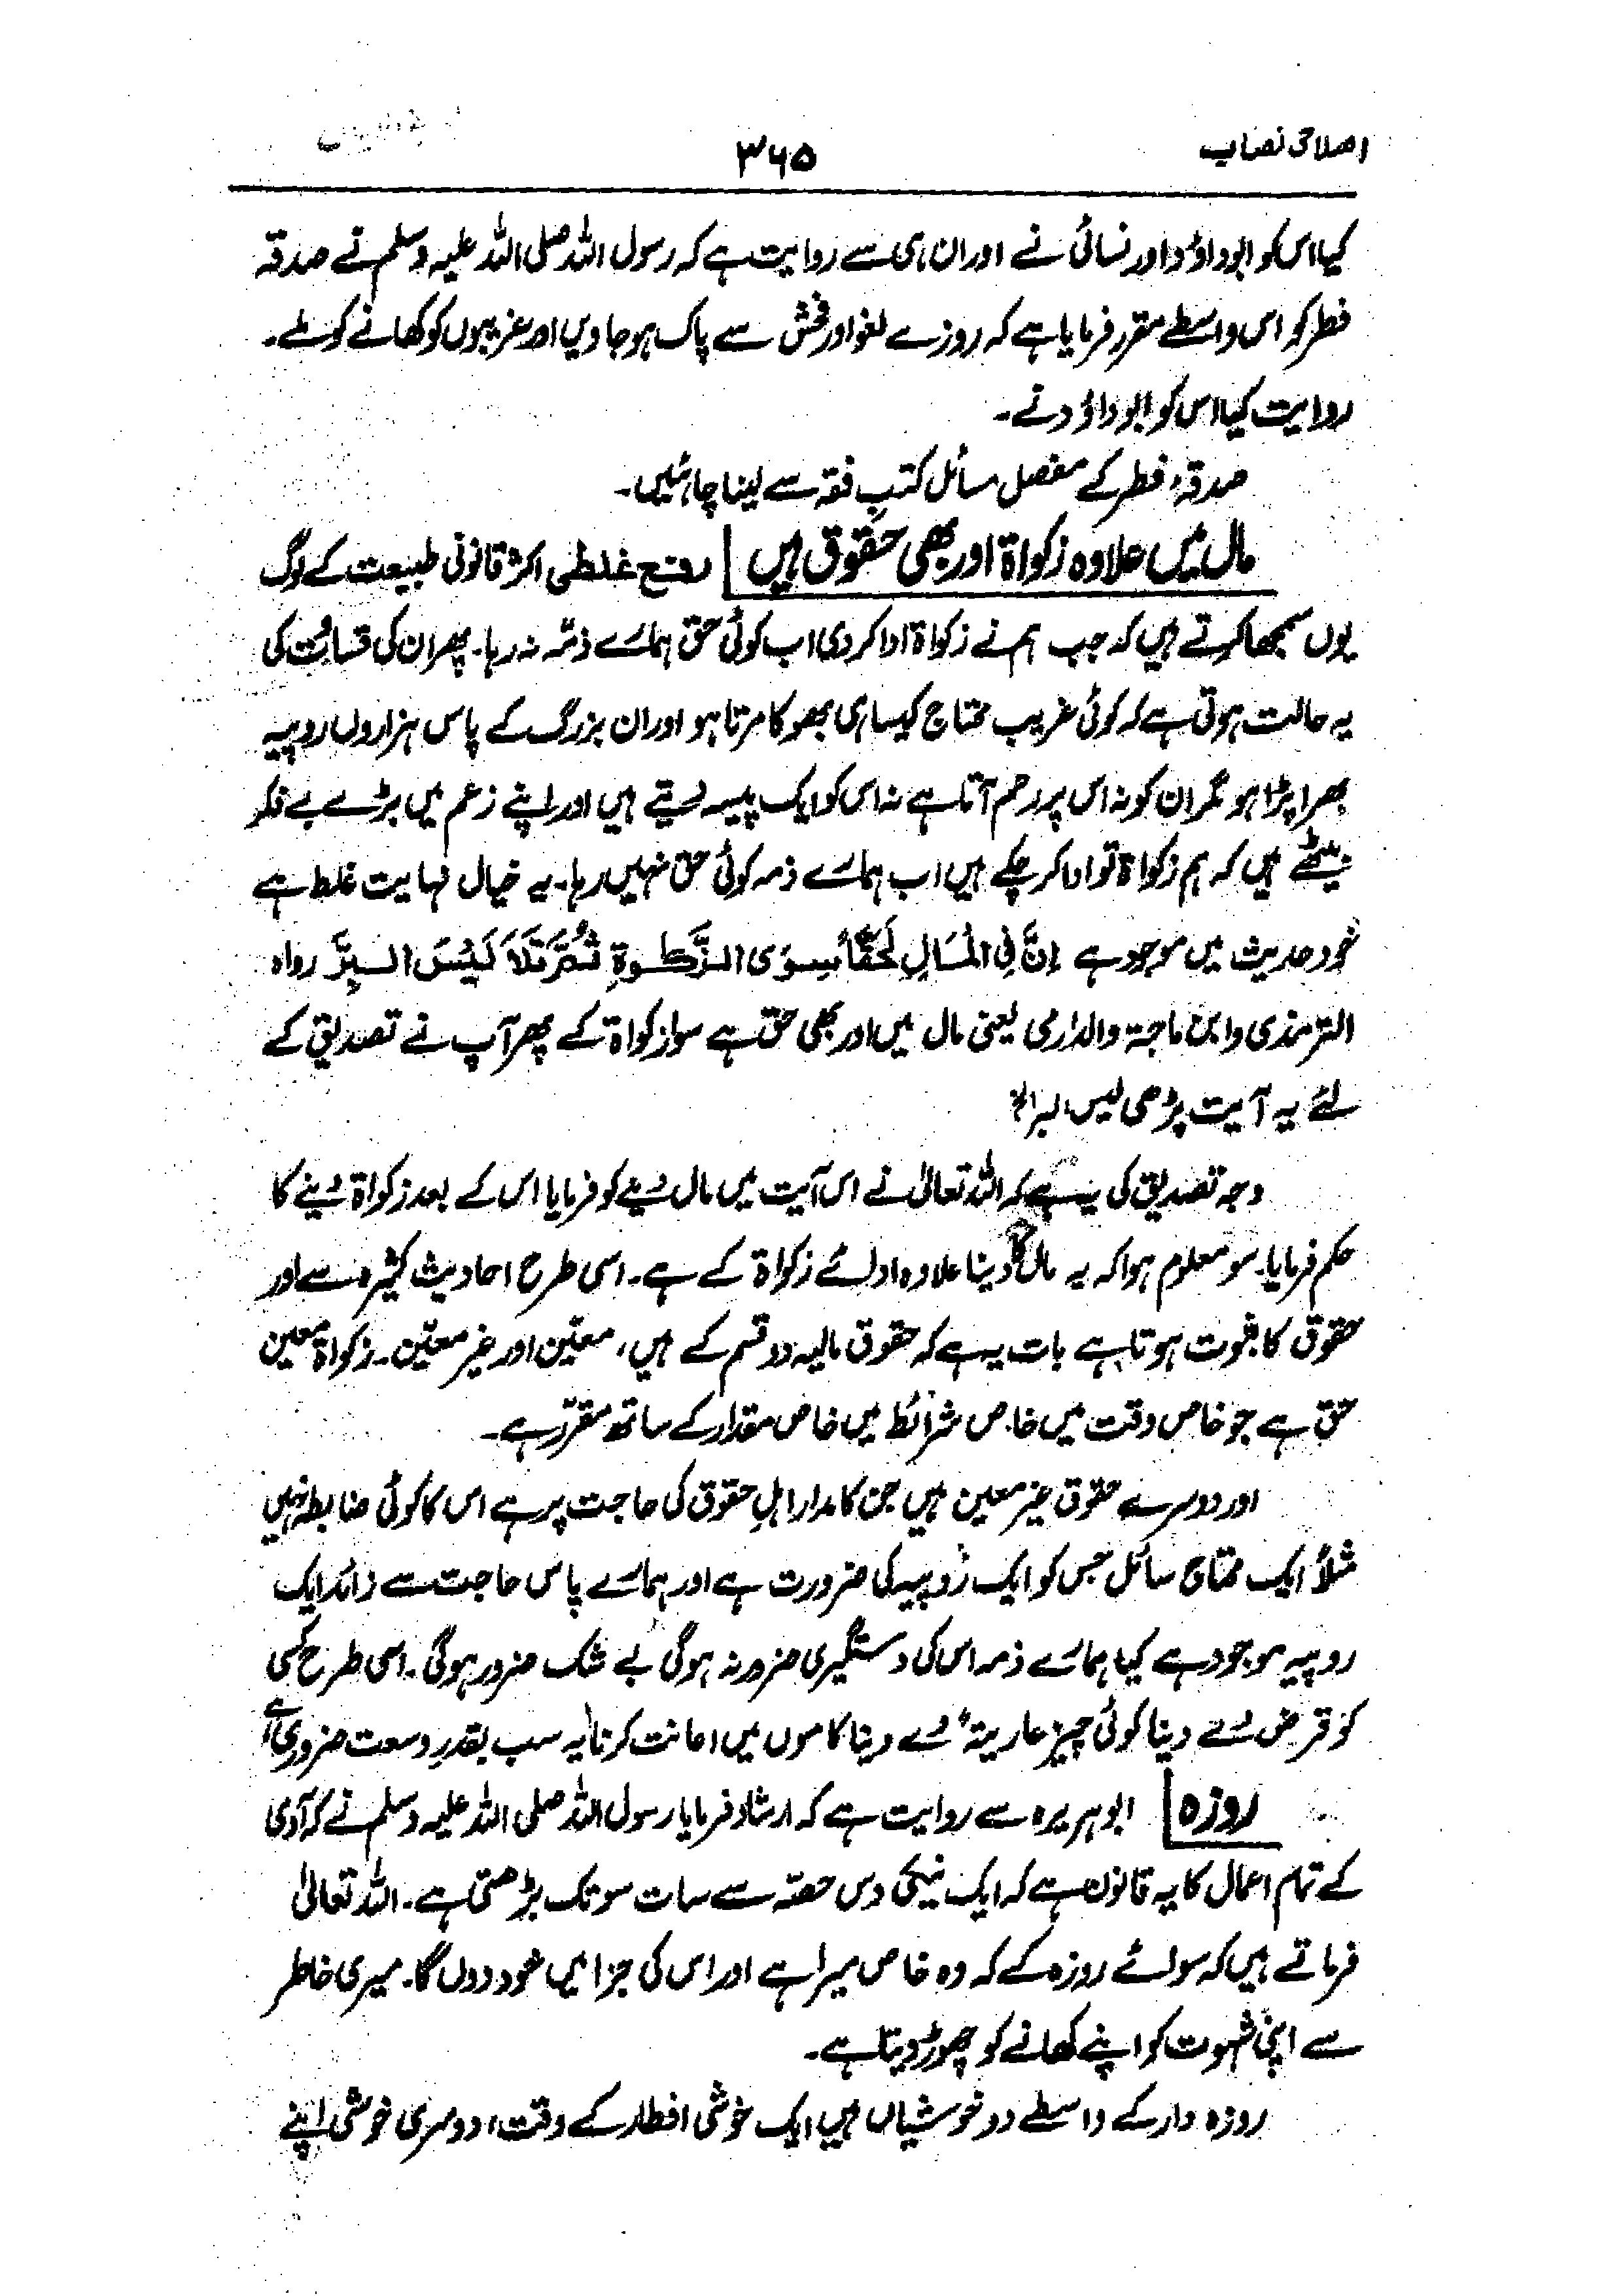 اصلاحی نصاب
۳۶۵
کیا اس کو ابوداؤد اور نسائی نے اور ان ہی سے روایت ہے کہ رسول اللہ صلی اللہ علیہ وسلم نے صدقہ
فطر کو اس واسطے مقرر فرمایا ہے کہ روزے لغو اور فحش سے پاک ہو جاویں اور غریبوں کو کھانے کو ملے۔
روایت کیا اس کو ابوداؤد نے۔
صدقۂ فطر کے مفصل مسائل کتب فقہ سے لینا چاہئیں۔
مال میں علاوہ زکواۃ اور بھی حقوق ہیں رفع غلطی اکثر قانونی طبیعت کے لوگ
یوں سمجھا کرتے ہیں کہ جب ہم نے زکواۃ ادا کر دی اب کوئی حق ہمارے ذمّہ نہ رہا۔ پھر ان کی قساوت کی
یہ حالت ہوتی ہے کہ کوئی غریب محتاج کیسا ہی بھوکا مرتا ہو اور ان بزرگ کے پاس ہزاروں روپیہ
بھرا پڑا ہو مگر ان کو نہ اس پر رحم آتا ہے نہ اس کو ایک پیسہ دیتے ہیں اور اپنے زعم میں بڑے بے فکر
بیٹھے ہیں کہ ہم زکواۃ تو ادا کر چکے ہیں اب ہمارے ذمہ کوئی حق نہیں رہا۔ یہ خیال نہایت غلط ہے
خود حدیث میں موجود ہے اِنَّ فِی الْمَالِ لَحَقًّا سِوَی الزَّکٰوۃِ ثُمَّ تَلَا لَیْسَ الْبِرَّ رواہ
الترمذی وابن ماجۃ والدارمی یعنی مال میں اور بھی حق ہے سوا زکواۃ کے پھر آپ نے تصدیق کے
لئے یہ آیت پڑھی لیس البر الخ
وجہ تصدیق کی یہ ہے کہ اللہ تعالیٰ نے اس آیت میں مال دینے کو فرمایا اس کے بعد زکواۃ دینے کا
حکم فرمایا۔ سو معلوم ہوا کہ یہ مال کا دینا علاوہ ادائے زکواۃ کے ہے۔ اسی طرح احادیث کثیرہ سے اور
حقوق کا ثبوت ہوتا ہے بات یہ ہے کہ حقوق مالیہ دو قسم کے ہیں، معیّن اور غیر معیّن۔ زکواۃ معین
حق ہے جو خاص وقت میں خاص شرائط میں خاص مقدار کے ساتھ مقرّر ہے۔
اور دوسرے حقوق غیر معین ہیں جن کا مدار اہلِ حقوق کی حاجت پر ہے اس کا کوئی ضابطہ نہیں
مثلاً ایک محتاج سائل جس کو ایک روپیہ کی ضرورت ہے اور ہمارے پاس حاجت سے زائد ایک
روپیہ موجود ہے کیا ہمارے ذمہ اس کی دستگیری ضرور نہ ہوگی بے شک ضرور ہوگی۔ اسی طرح کسی
کو قرض دے دینا کوئی چیز عاریۃً دے دینا کاموں میں اعانت کرنا یہ سب بقدرِ وسعت ضروری ہے
روزہ ابوہریرہ سے روایت ہے کہ ارشاد فرمایا رسول اللہ صلی اللہ علیہ وسلم نے کہ آدمی
کے تمام اعمال کا یہ قانون ہے کہ ایک نیکی دس حصّہ سے سات سو تک بڑھتی ہے۔ اللہ تعالیٰ
فرماتے ہیں کہ سوائے روزہ کے کہ وہ خاص میرا ہے اور اس کی جزا میں خود دوں گا۔ میری خاطر
سے اپنی شہوت کو اپنے کھانے کو چھوڑ دیتا ہے۔
روزہ دار کے واسطے دو خوشیاں ہیں ایک خوشی افطار کے وقت، دوسری خوشی اپنے